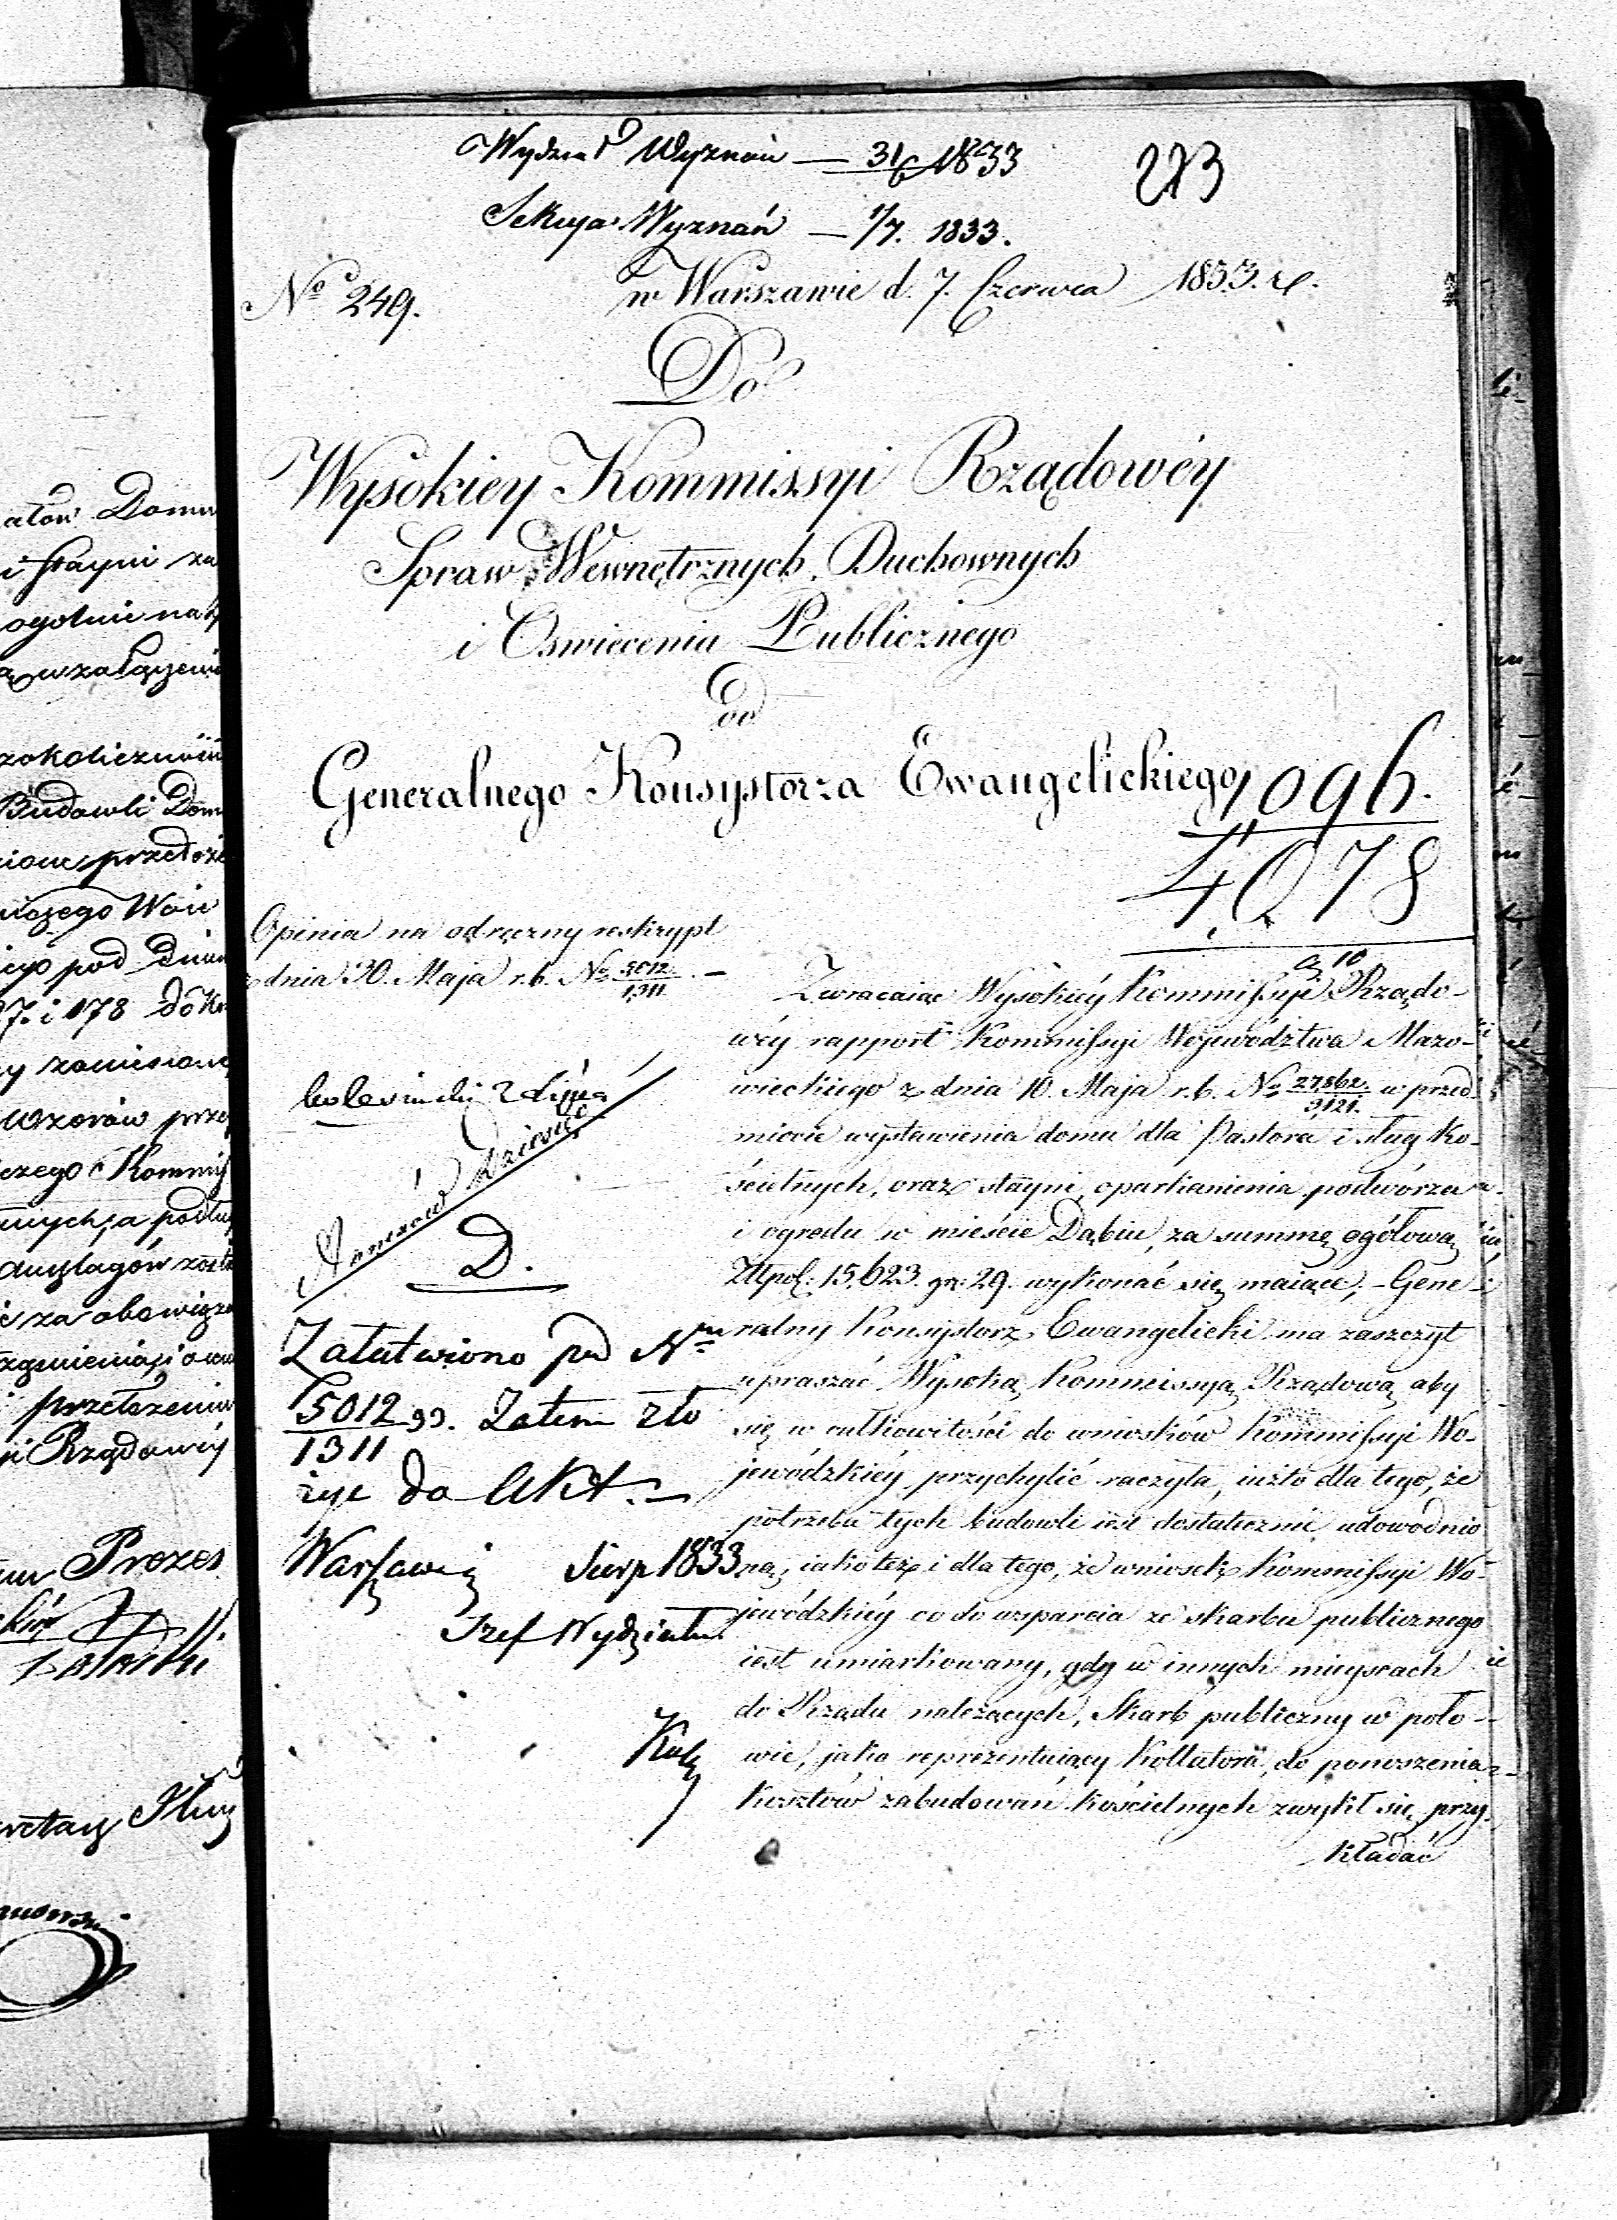 Wydział Wyznań — 31/6 1833
273
Sekcya Wyznań — 1/7. 1833.
No 249.
w Warszawie d. 7. Czerwca 1833. r.
Do
Wysokiey Kommissyi Rządowéy
Spraw Wewnętrznych, Duchownych
i Oswiecenia Publicznego
od
Generalnego Konsystorza Ewangelickiego
1096.
4078
Opinia na odręczny reskrypt
z dnia 30. Maja r.b. No 5012/1311. —
2 Lipca
Arkuszów Dziesięć
D.
Załatwiono pod Nrm
5012/1311 33. Zatem zło
żyć do Akt.—
Warszawa Sierp 1833
Szef Wydziału
Zwracaiąc Wysokiéy Kommissyi Rządo-
wéy rapport Kommissyi Województwa Mazo-
wieckiego z dnia 10. Maja r.b. No 27,862./3,121. w przed-
miocie wystawienia domu dla Pastora i sług Ko-
ścielnych, oraz stayni, oparkanienia podwórza
i ogrodu w mieście Dąbiu, za summę ogółową
Złtpol: 15,623. gr: 29. wykonać się maiące, — Gene-
ralny Konsystorz Ewangelicki ma zaszczyt
upraszać Wysoką Kommissyą Rządową aby
się w całkowitości do wniosków Kommissyi Wo-
jewódzkiéy przychylić raczyła, iużto dla tego, że
potrzeba tych budowli iest dostatecznie udowodnio
ną, iako też i dla tego, że wniosek Kommissyi Wo-
jewódzkiéy co do wsparcia ze skarbu publicznego
iest umiarkowany, gdy w innych mieyscach
do Rządu należących, Skarb publiczny w poło-
wie, jako reprezentuiący Kollatora, do ponoszenia
kosztów zabudowań kościelnych zwykł się przy-
kładać
atów Domu
i stayni za
ogólnie na
w załączeniu
Budowli Dom
pod Dniem
7. i 178 do
wzorów
Kommis
za obowiąz
Rządowéy
Prezes